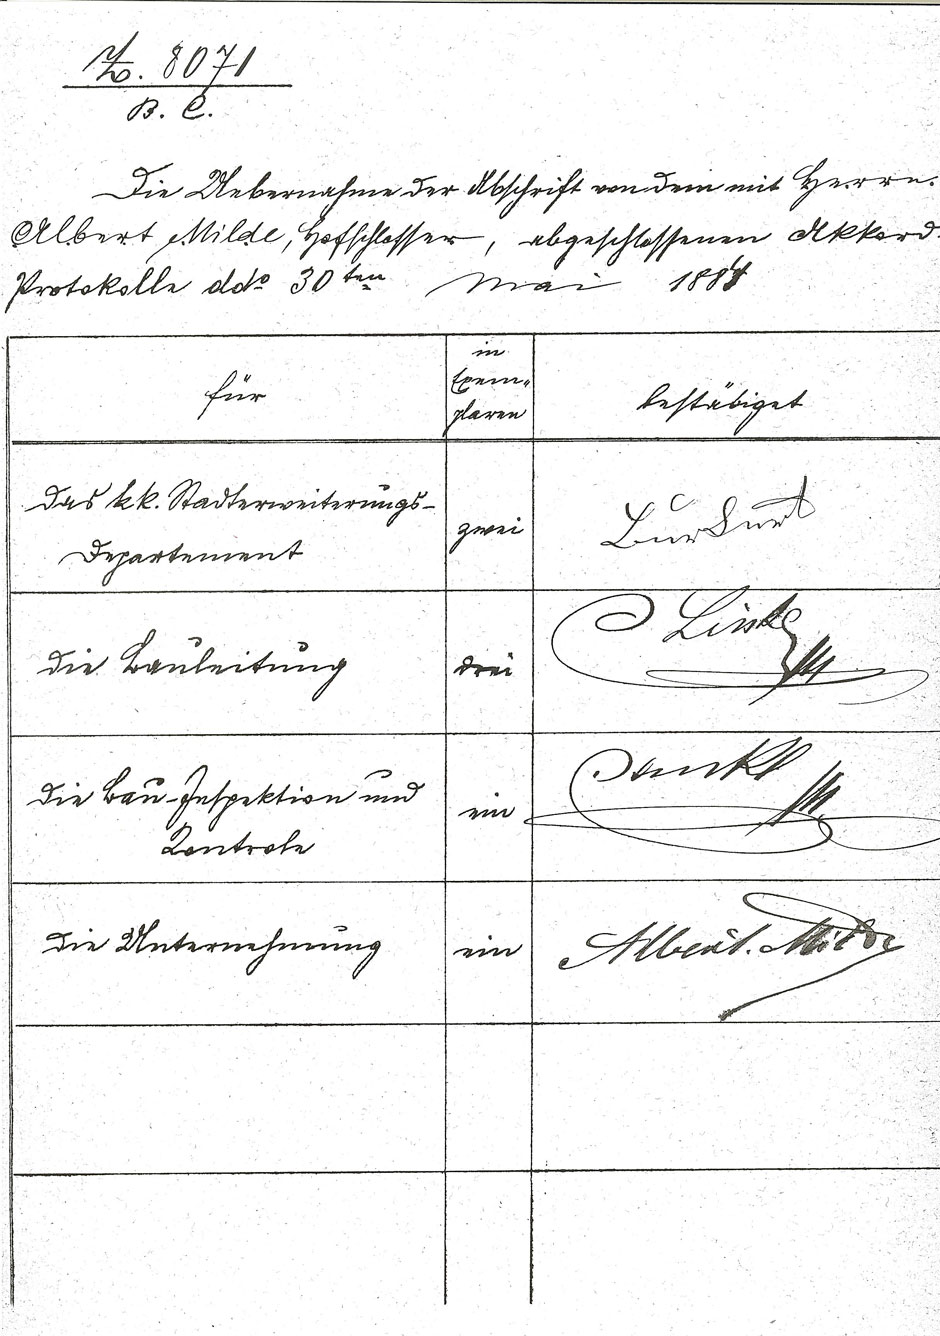 Z. 8071
B. C.
Die Uebernahme der Abschrift von dem mit Herrn
Albert Milde, Hofschlosser, abgeschlossenen Akkord-
Protokolle ddo 30ten Mai 1884
für
in
Exem-
plaren
bestätiget
das kk. Stadterweiterungs-
Departement
zwei
die Bauleitung
drei
Linke
die Bau-Inspektion und
Kontrole
ein
die Unternehmung
ein
Albert Milde